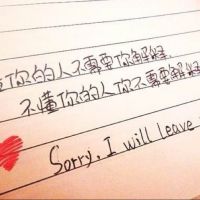 你的人不需要你解释.
不懂你的人你不需要解释
Sorry, I will leave